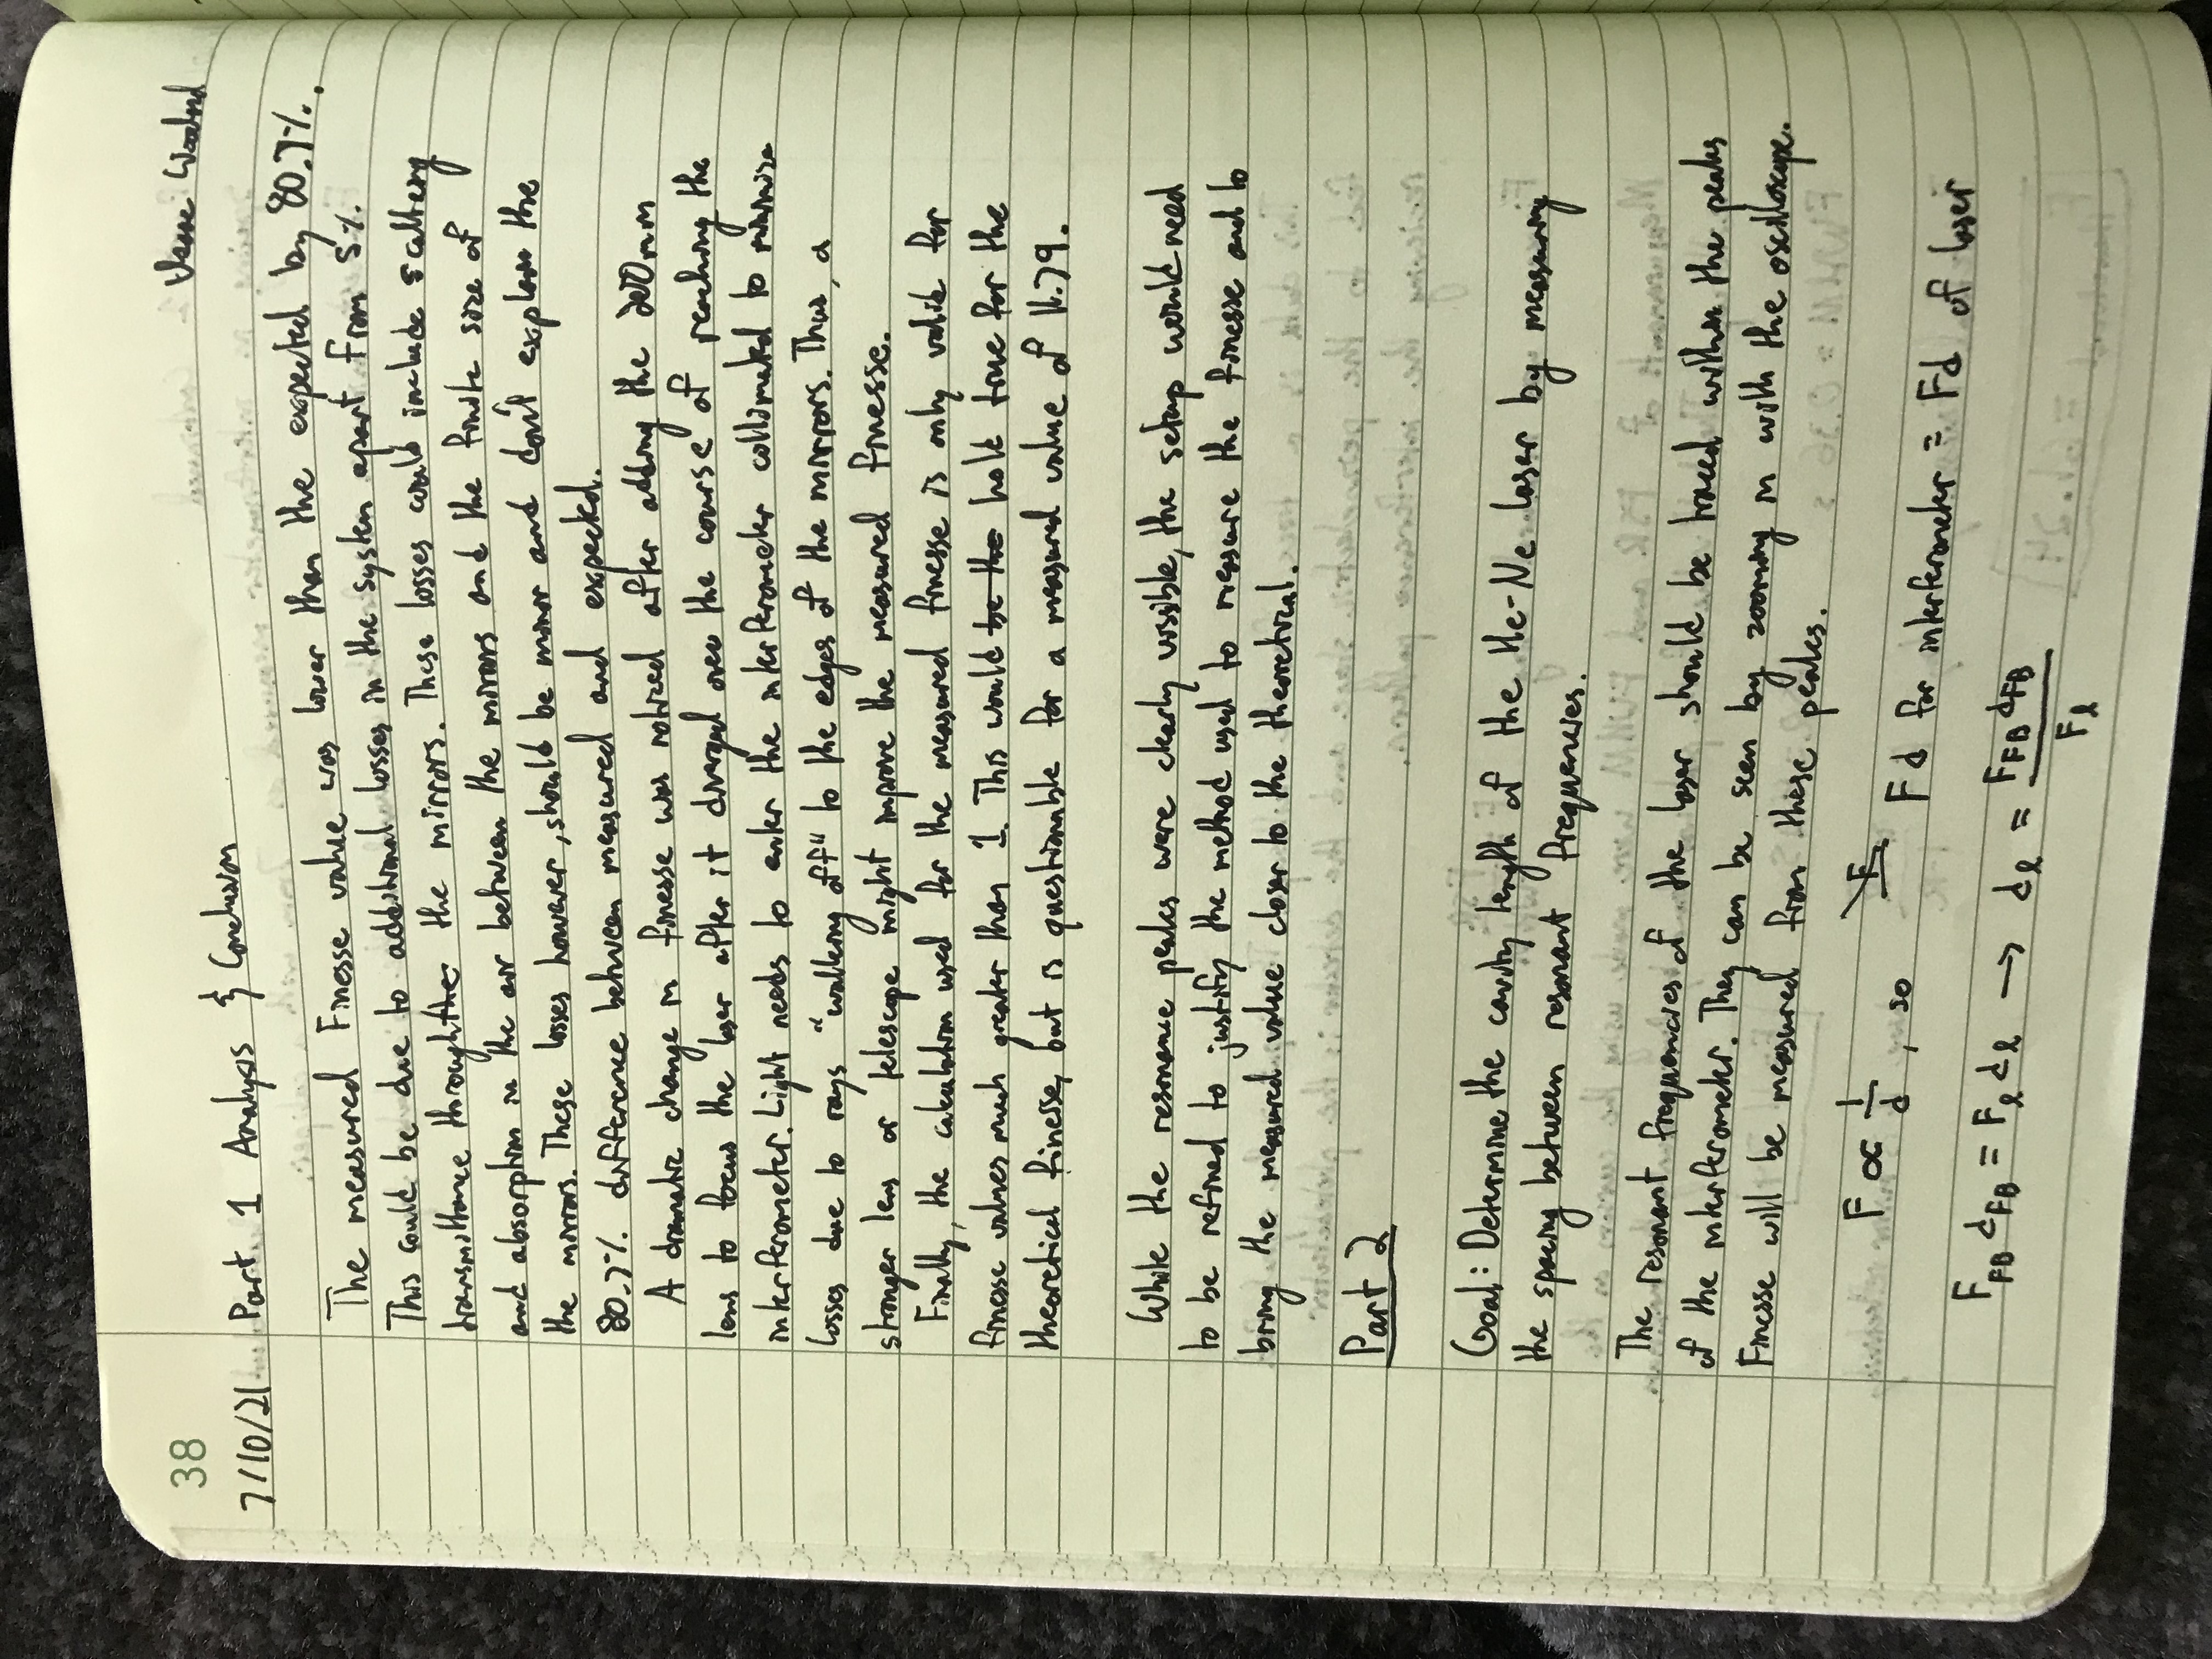 38
7/10/21 Part 1 Analysis & Conclusion
The measured Finesse value was lower than the expected by 80.7%.
This could be due to additional losses in the system apart from 5%
transmittance through the the mirrors. These losses could include scattering
and absorption in the air between the mirrors and the finite size of
the mirrors. These losses however, should be minor and don't explain the
80.7% difference between measured and expected.
A dramatic change in finesse was noticed after adding the 200mm
lens to focus the laser after it diverged over the course of reaching the
interferometer. Light needs to enter the interferometer collimated to minimize
losses due to rays "walking off" to the edges of the mirrors. Thus, a
stronger lens or telescope might improve the measured finesse.
Finally, the calculation used for the measured finesse is only valid for
finesse values much greater than 1. This would be the hold true for the
theoretical finesse, but is questionable for a measured value of 11.79.
While the resonance peaks were clearly vissible, the setup would need
to be refined to justify the method used to measure the finesse and to
bring the measured value closer to the theoretical.
Part 2
Goal: Determine the cavity length of the He-Ne laser by measuring
the spacing between resonant frequencies.
The resonant frequencies of the laser should be traced within the peaks
of the interferometer. They can be seen by zooming in with the oscilloscope.
Finesse will be measured from these peaks.
F ∝ 1/d, so F Fd for interferometer = Fd of laser
F_FB d_FB = F_l d_l → d_l = F_FB d_FB / F_l